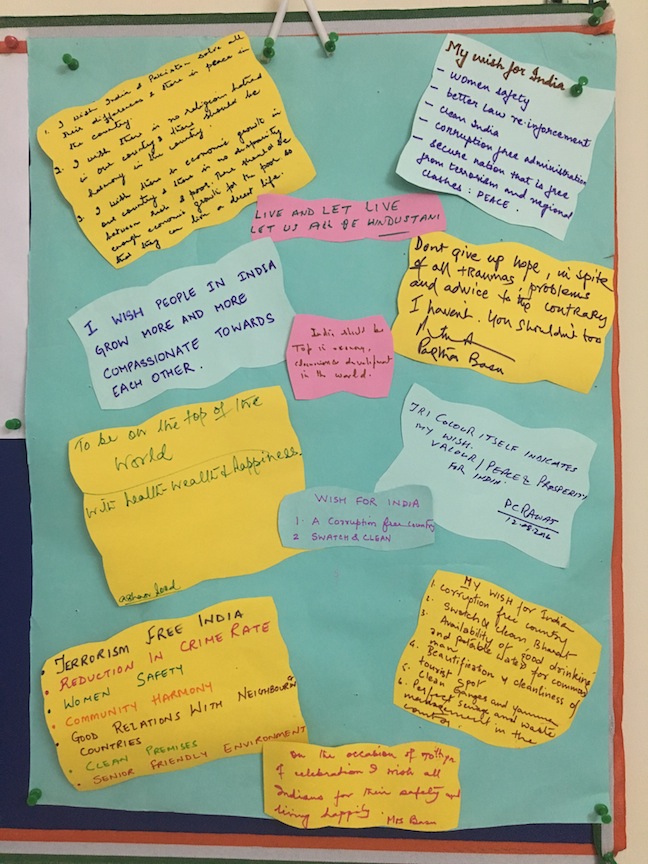 1. I wish India & Pakistan solve all
their differences & there is peace in
the country.
2. I wish there is no religion hatred
in our country & there should be
harmony in the country.
3. I wish there is economic growth in
our country & there is no disparity
between rich & poor. There should be
enough economic growth for the poor so
that they can live a decent life.
My wish for India
- women safety
- better law re-inforcement
- clean India
- corruption free administration
- secure nation that is free
from terrorism and regional
clashes: PEACE.
LIVE AND LET LIVE
LET US ALL BE HINDUSTANI
Dont give up hope, in spite
of all traumas, problems
and advice to the contrary
I havent. You shouldn't too
Basu
I WISH PEOPLE IN INDIA
GROW MORE AND MORE
COMPASSIONATE TOWARDS
EACH OTHER.
India should be
Top in economy,
development
in the world.
To be on the top of the
World
with health wealth & Happiness.
TRI COLOUR ITSELF INDICATES
MY WISH.
VALOUR / PEACE & PROSPERITY
FOR INDIA.
PC RAWAT
WISH FOR INDIA
1. A Corruption free country
2 SWATCH & CLEAN
MY wish for India
1. Corruption free country
2. Swatch & clean Bharat
3. Availability of good drinking
and potable water for common
man
4. Beautification & cleanliness of
tourist spot
5. Clean Ganges and Yamuna
6. Perfect sewage and waste
management in the
country.
• TERRORISM FREE INDIA
• REDUCTION IN CRIME RATE
• WOMEN SAFETY
• COMMUNITY HARMONY
• GOOD RELATIONS WITH NEIGHBOURING
COUNTRIES
• CLEAN PREMISES
• SENIOR FRIENDLY ENVIRONMENT
On the occasion of 70th yr
of celebration I wish all
Indians for their safety and
living happily. Mrs Basu